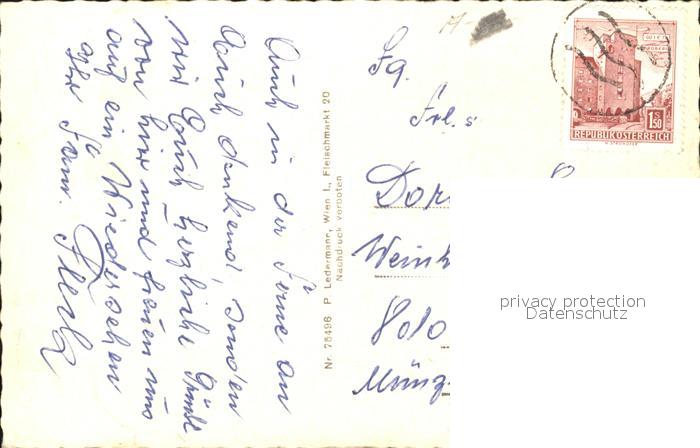 Auch in der Ferne an
Euch denkend, senden
wir Euch herzliche Grüße
von hier und freuen uns
auf ein Wiedersehen
Ihr Fam.
Nr. 75496 P. Ledermann, Wien I., Fleischmarkt 20
Nachdruck verboten
Fa.
Frl.
Dor
Weinh
8010
Münz
WIEN
1.50
REPUBLIK ÖSTERREICH
privacy protection
Datenschutz